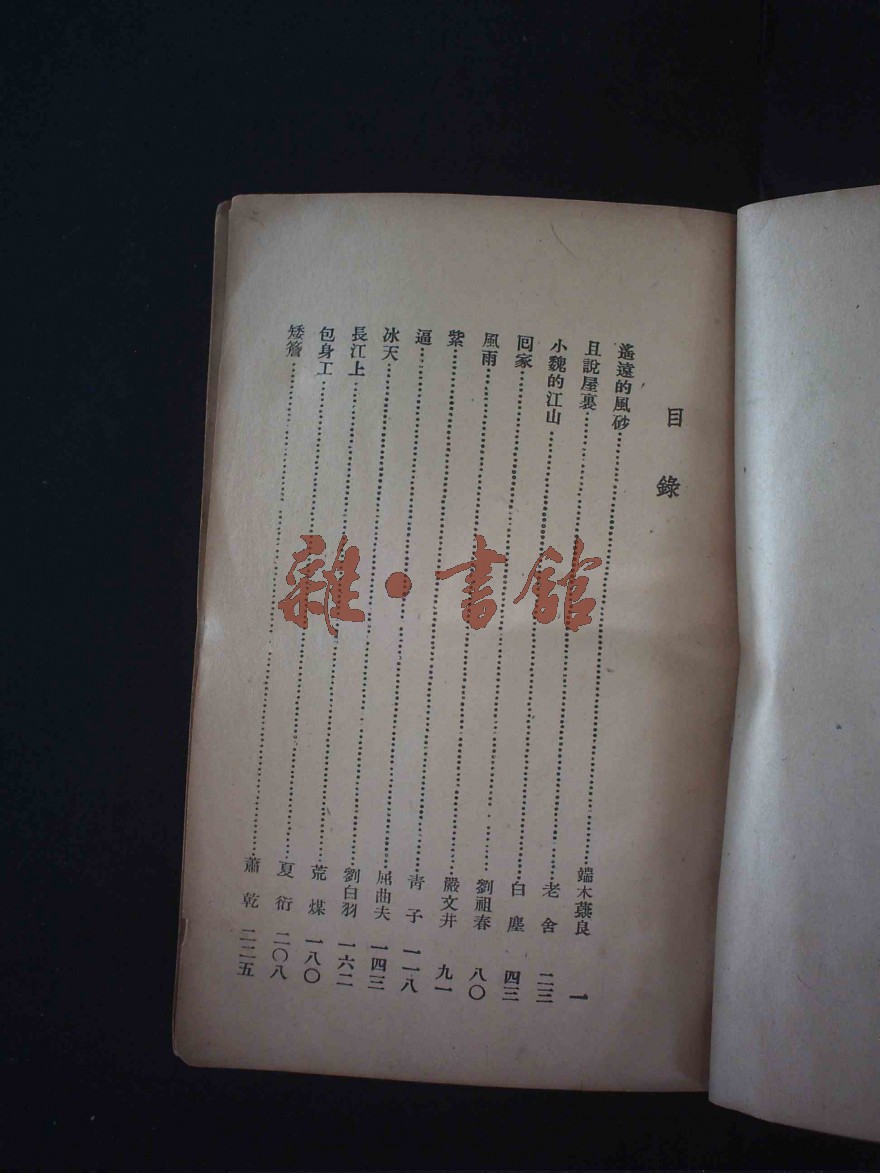 目錄
遙遠的風砂 端木蕻良 一
且說屋裏 老舍 二三
小魏的江山 白塵 四三
囘家 劉祖春 八〇
風雨 嚴文井 九一
紫 青子 一一八
逼 屈曲夫 一四三
冰天 劉白羽 一六二
長江上 荒煤 一八〇
包身工 夏衍 二〇八
矮簷 蕭乾 二二五
雜·書館